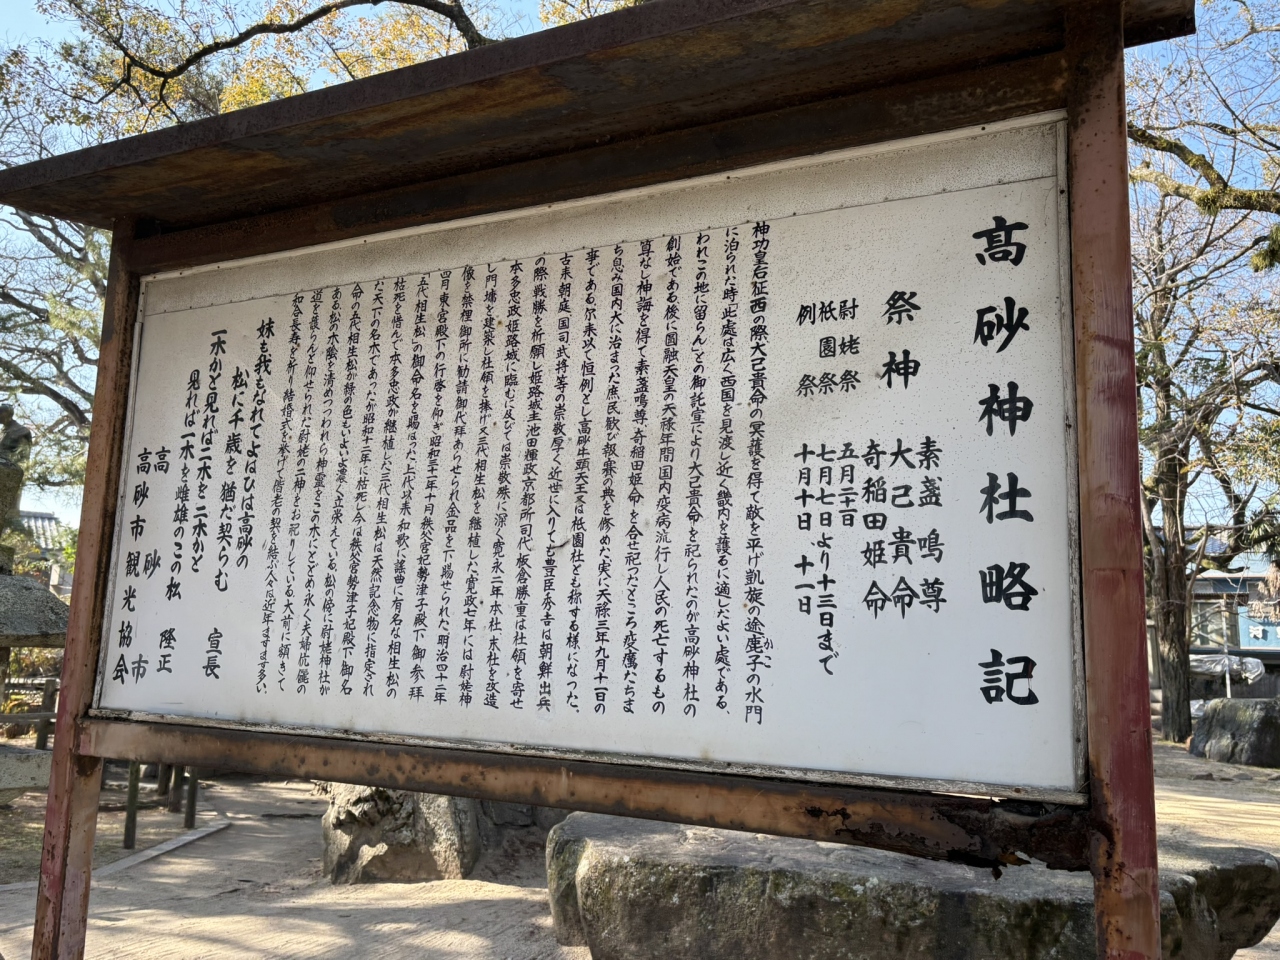 高砂神社略記
祭神
素盞鳴尊
大己貴命
奇稲田姫命
尉姥祭 五月二十一日
祇園祭 七月七日より十三日まで
例祭 十月十日、十一日
神功皇后征西の際大己貴命の冥護を得て敵を平げ凱旋の途鹿子の水門
かこ
に泊られた時此處は広く西国を見渡し近く畿内を護るに適したよい処である、
われこの地に留らん」との御託宣により大己貴命を祀られたのが高砂神社の
創始である後に円融天皇の天禄年間国内疫病流行し人民の死亡するもの
算なし神誨を得て素盞鳴尊、奇稲田姫命を合せ祀ったところ疫癘たちま
ち息み国内大に治まった庶民歓び報賽の典を修めた実に天禄三年九月十一日の
事である尓来以て恒例とし高砂牛頭天王は祇園社とも称する様になった、
古来朝庭国司武将等の崇敬厚く近世に入りても豊臣秀吉は朝鮮出兵
の際戦勝を祈願し姫路城主池田輝政京都所司代板倉勝重は社領を寄せ
本多忠政姫路城に臨むに及びては崇敬殊に深く寛永二年本社、末社を改造
し門、墻を建築し社領を捧げ又三代相生松を継植した寛政七年には尉姥神
像を禁裡御所に勧請御代拝あらせられ金品を下賜られた、明治四十二年
四月東宮殿下の行啓を仰ぎ昭和三十一年十月秩父宮妃勢津子殿下御参拝
五代相生松の御命名を賜はった上代以来和歌に謡曲に有名な相生松の
枯死を惜んで本多忠政が継植した三代相生松は天然記念物に指定され
た天下の名木であったが昭和十二年に枯死し今は秩父宮勢津子妃殿下御命名
命の五代相生松が緑の色もいよいよ濃く立栄えている、松の傍に尉姥神社が
ある松の木陰を清めつつわれら神霊をこの木にとどめ永く夫婦伉儷の
道を護らんと仰せられた尉姥の神をお祀りしている大前に額きて
和合長寿を祈り結婚式を挙げて偕老の契を結ぶ人々は近年ますます多い、
妹も我もなれてよはひは高砂の
松に千歳を猶だ契らむ 宣長
一木かと見れば二木を二木かと
見れば一木を雌雄のこの松 隆正
高砂市
高砂市観光協会